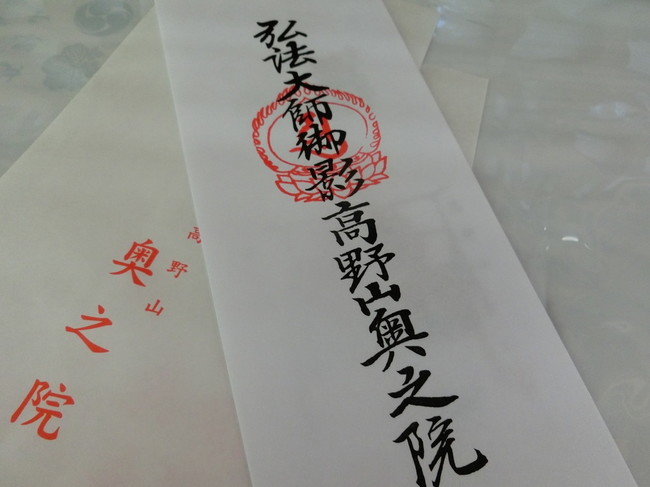 弘法大師御影高野山奥之院
高野山
奥之院